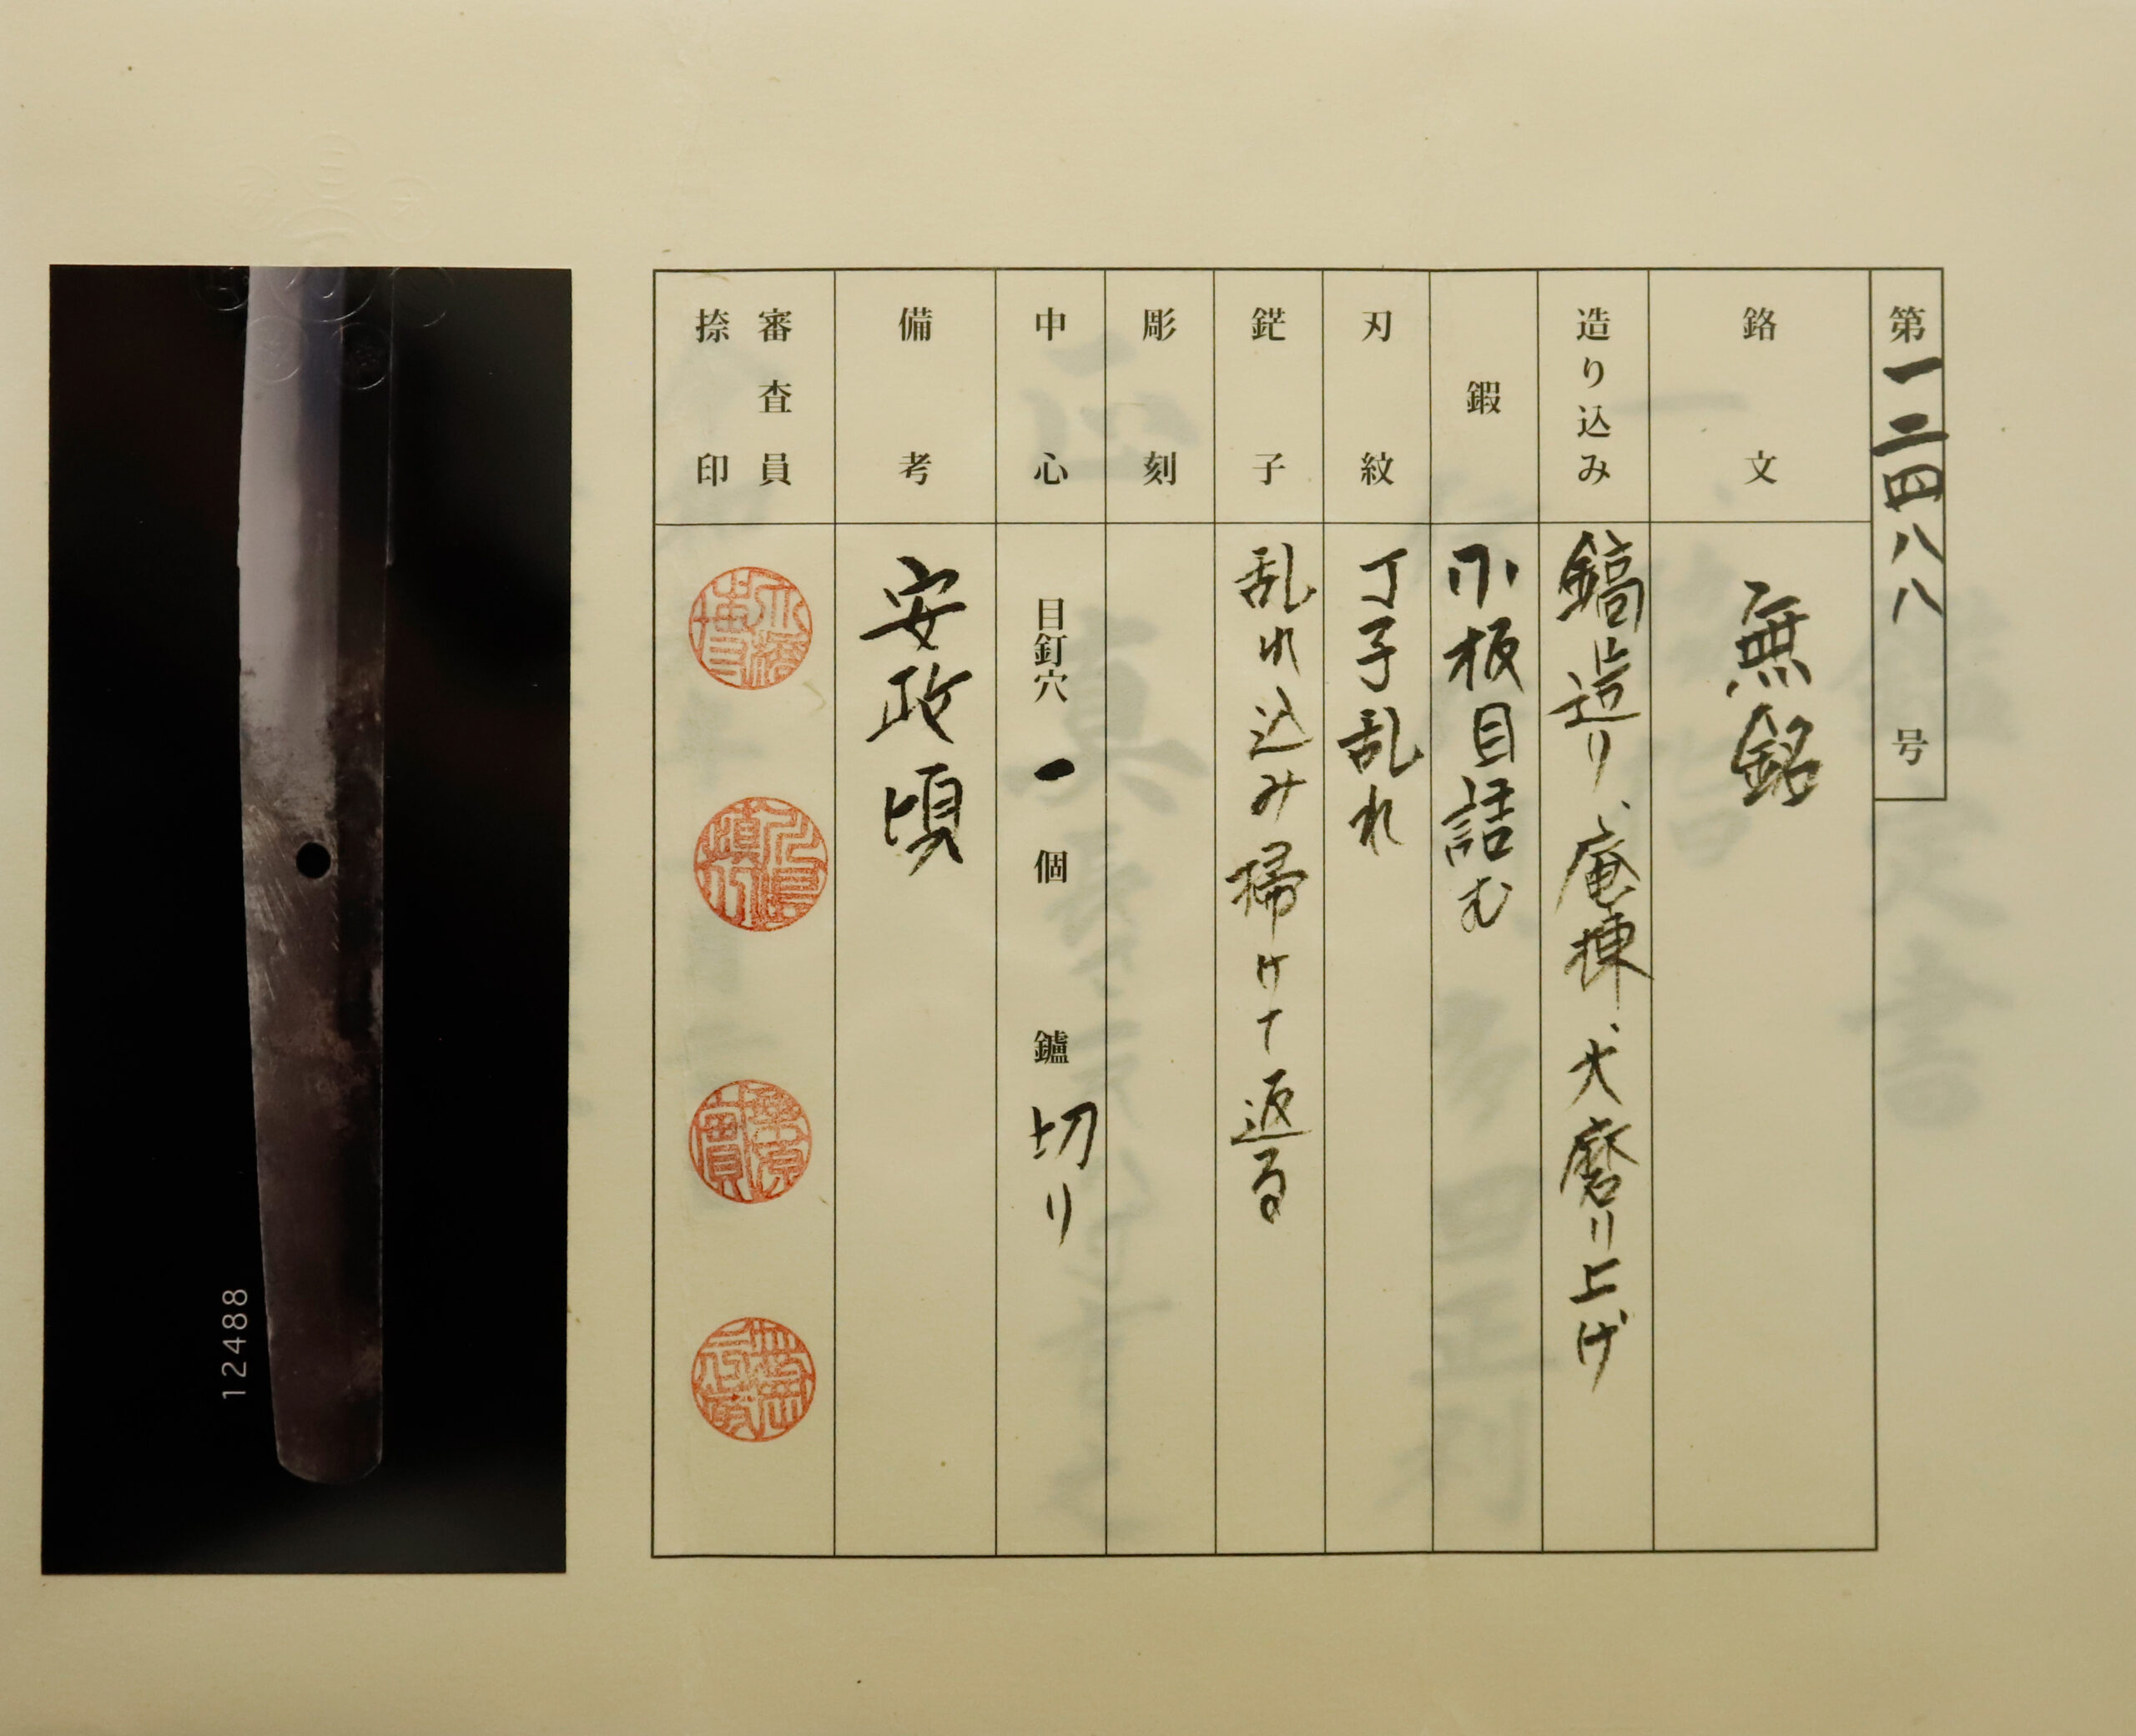 第一二四八八号
銘文 無銘
造り込み 鎬造り、庵棟、大磨り上げ
鍛 小板目詰む
刃紋 丁子乱れ
鋩子 乱れ込み掃けて返る
彫刻
中心 目釘穴 一 個 鑢 切り
備考 安政頃
審査員
捺印
12488